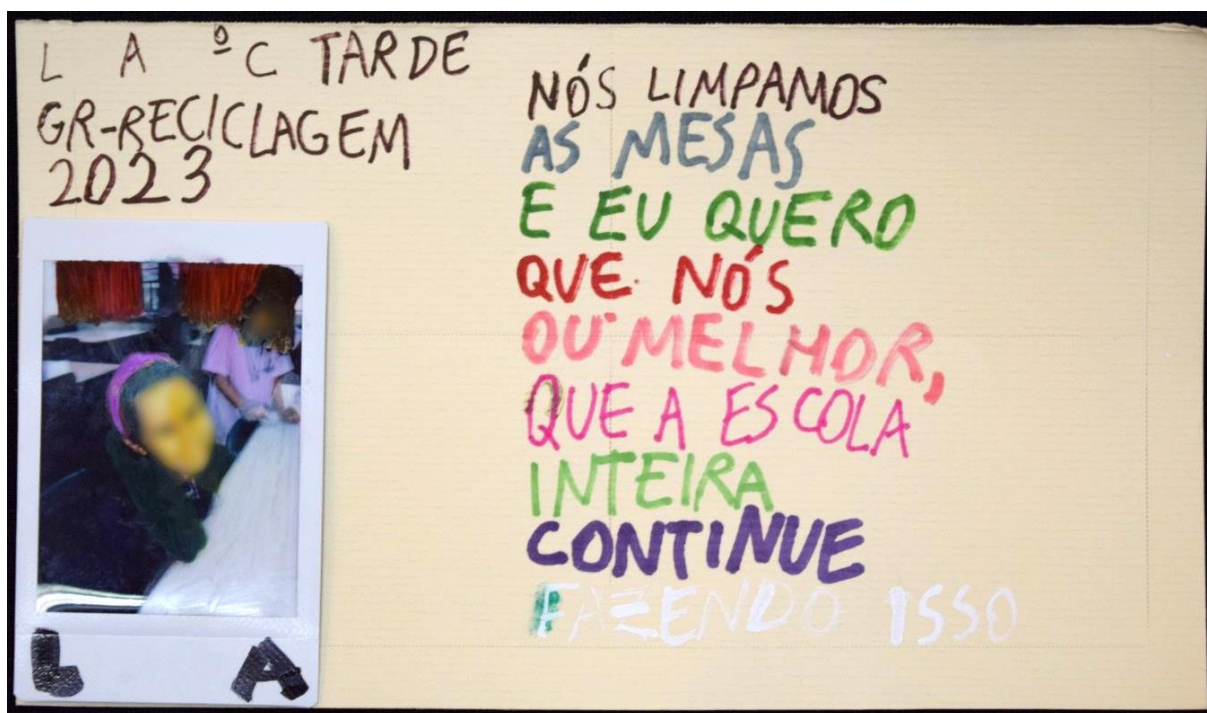 L A ºC TARDE
GR-RECICLAGEM
2023
NÓS LIMPAMOS
AS MESAS
E EU QUERO
QUE NÓS
OU MELHOR,
QUE A ESCOLA
INTEIRA
CONTINUE
FAZENDO ISSO
L A